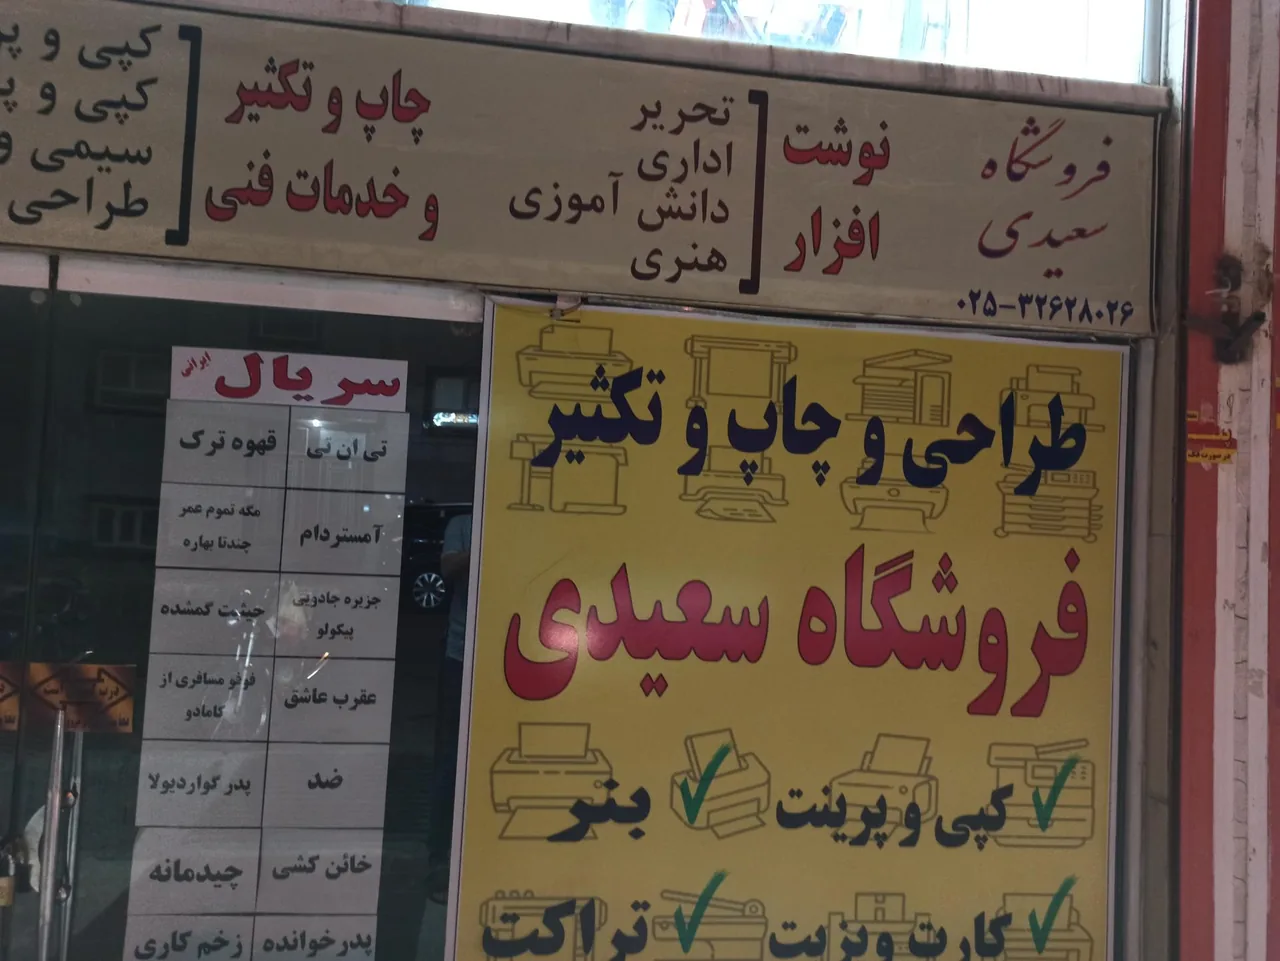 فروشگاه
سعیدی
۰۲۵-۳۲۶۲۸۰۲۶
نوشت
افزار
تحریر
اداری
دانش آموزی
هنری
چاپ و تکثیر
و خدمات فنی
کپی و
کپی و
سیمی و
طراحی
طراحی و چاپ و تکثیر
فروشگاه سعیدی
کپی و پرینت
بنر
کارت ویزیت
تراکت
سریال ایرانی
تی ان تی
قهوه ترک
آمستردام
مگه تموم عمر
چندتا بهاره
جزیره جادویی
پیکولو
حیثیت گمشده
عقرب عاشق
مسافری از
کامادو
ضد
پدر گواردیولا
خائن کشی
چیدمانه
پدرخوانده
زخم کاری